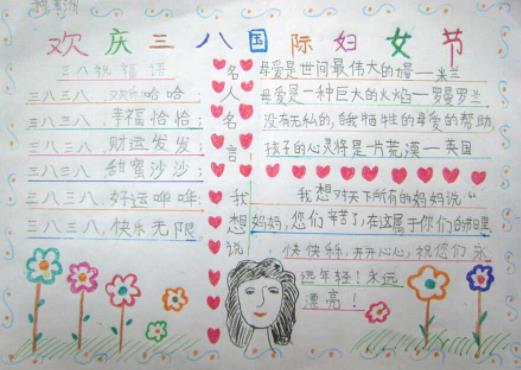 欢庆三八国际妇女节
三八祝福语
三八三八，欢乐哈哈，
三八三八，幸福恰恰；
三八三八，财运发发；
三八三八，甜蜜沙沙；
三八三八，好运哗哗；
三八三八，快乐无限
名人名言
母爱是世间最伟大的力量——米兰
母爱是一种巨大的火焰——罗曼罗兰
没有无私的，自我牺牲的母爱的帮助
孩子的心灵将是一片荒漠——英国
我想说
我想对天下所有的妈妈说：“
妈妈，您们辛苦了，在这属于你们的节日里
快快乐乐，开开心心，祝您们永
远年轻！永远
漂亮！